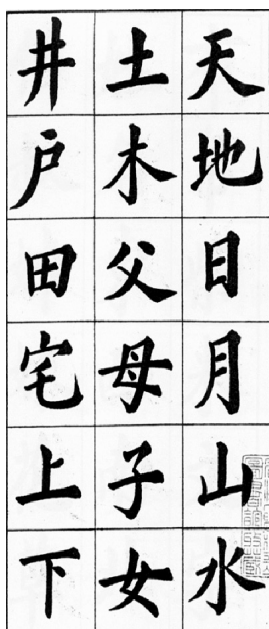 天地日月山水
土木父母子女
井户田宅上下